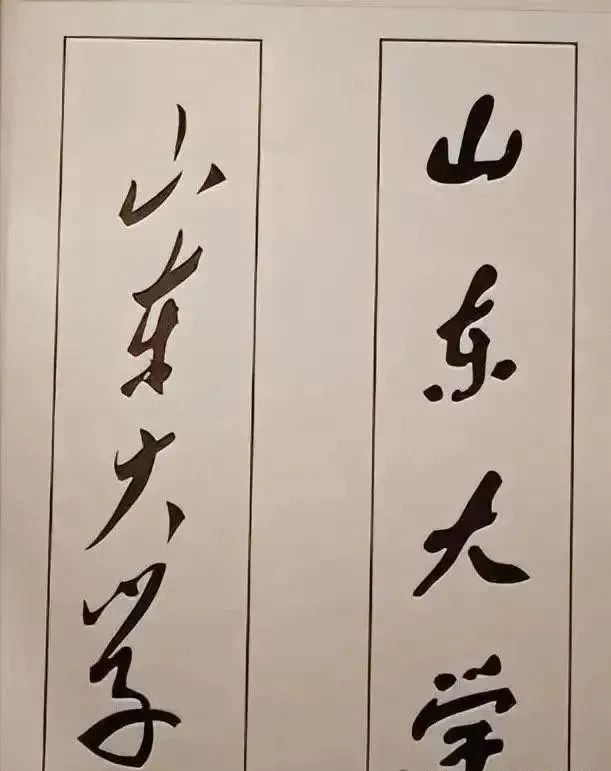 山东大学
山东大学